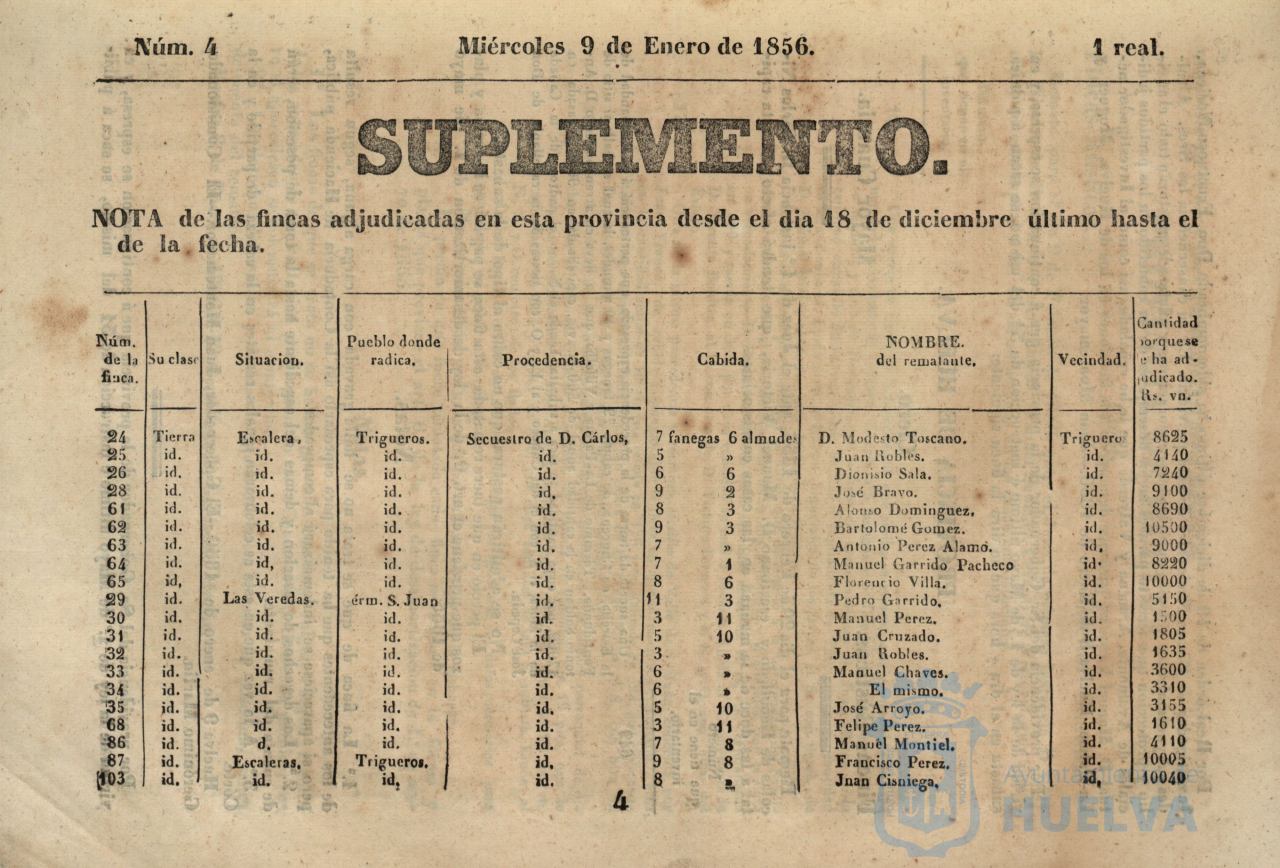 Núm. 4 Miércoles 9 de Enero de 1856. 1 real.
SUPLEMENTO.
NOTA de las fincas adjudicadas en esta provincia desde el dia 18 de diciembre último hasta el
de la fecha.
Núm. de la finca. Su clase Situacion. Pueblo donde radica. Procedencia. Cabida. NOMBRE. del rematante. Vecindad. Cantidad porque se e ha ad- judicado. Rs. vn.
24 Tierra Escalera, Trigueros. Secuestro de D. Cárlos, 7 fanegas 6 almudes D. Modesto Toscano. Triguero 8625
25 id. id. id. id. 5 » Juan Robles. id. 4140
26 id. id. id. id. 6 6 Dionisio Sala. id. 7240
28 id. id. id. id. 9 2 José Bravo. id. 9100
61 id. id. id. id. 8 3 Alonso Dominguez. id. 8690
62 id. id. id. id. 9 3 Bartolomé Gomez. id. 10500
63 id. id. id. id. 7 » Antonio Perez Alamo. id. 9000
64 id. id, id. id. 7 1 Manuel Garrido Pacheco id. 8220
65 id, id. id. id. 8 6 Florencio Villa. id. 10000
29 id. Las Veredas. érm. S. Juan id. 11 3 Pedro Garrido. id. 5150
30 id. id. id. id. 3 11 Manuel Perez. id. 1500
31 id. id. id. id. 5 10 Juan Cruzado. id. 1805
32 id. id. id. id. 3 » Juan Robles. id. 1635
33 id. id. id. id. 6 » Manuel Chaves. id. 3600
34 id. id. id. id. 6 » El mismo. id. 3310
35 id. id. id. id. 5 10 José Arroyo. id. 3155
68 id. id. id. id. 3 11 Felipe Perez. id. 1610
86 id. d. id. id. 7 8 Manuel Montiel. id. 4110
87 id. Escaleras. Trigueros. id. 9 8 Francisco Perez. id. 10005
103 id. id. id, id. 8 » Jnan Cisniega. id. 10040
4
Ayuntamiento de
HUELVA